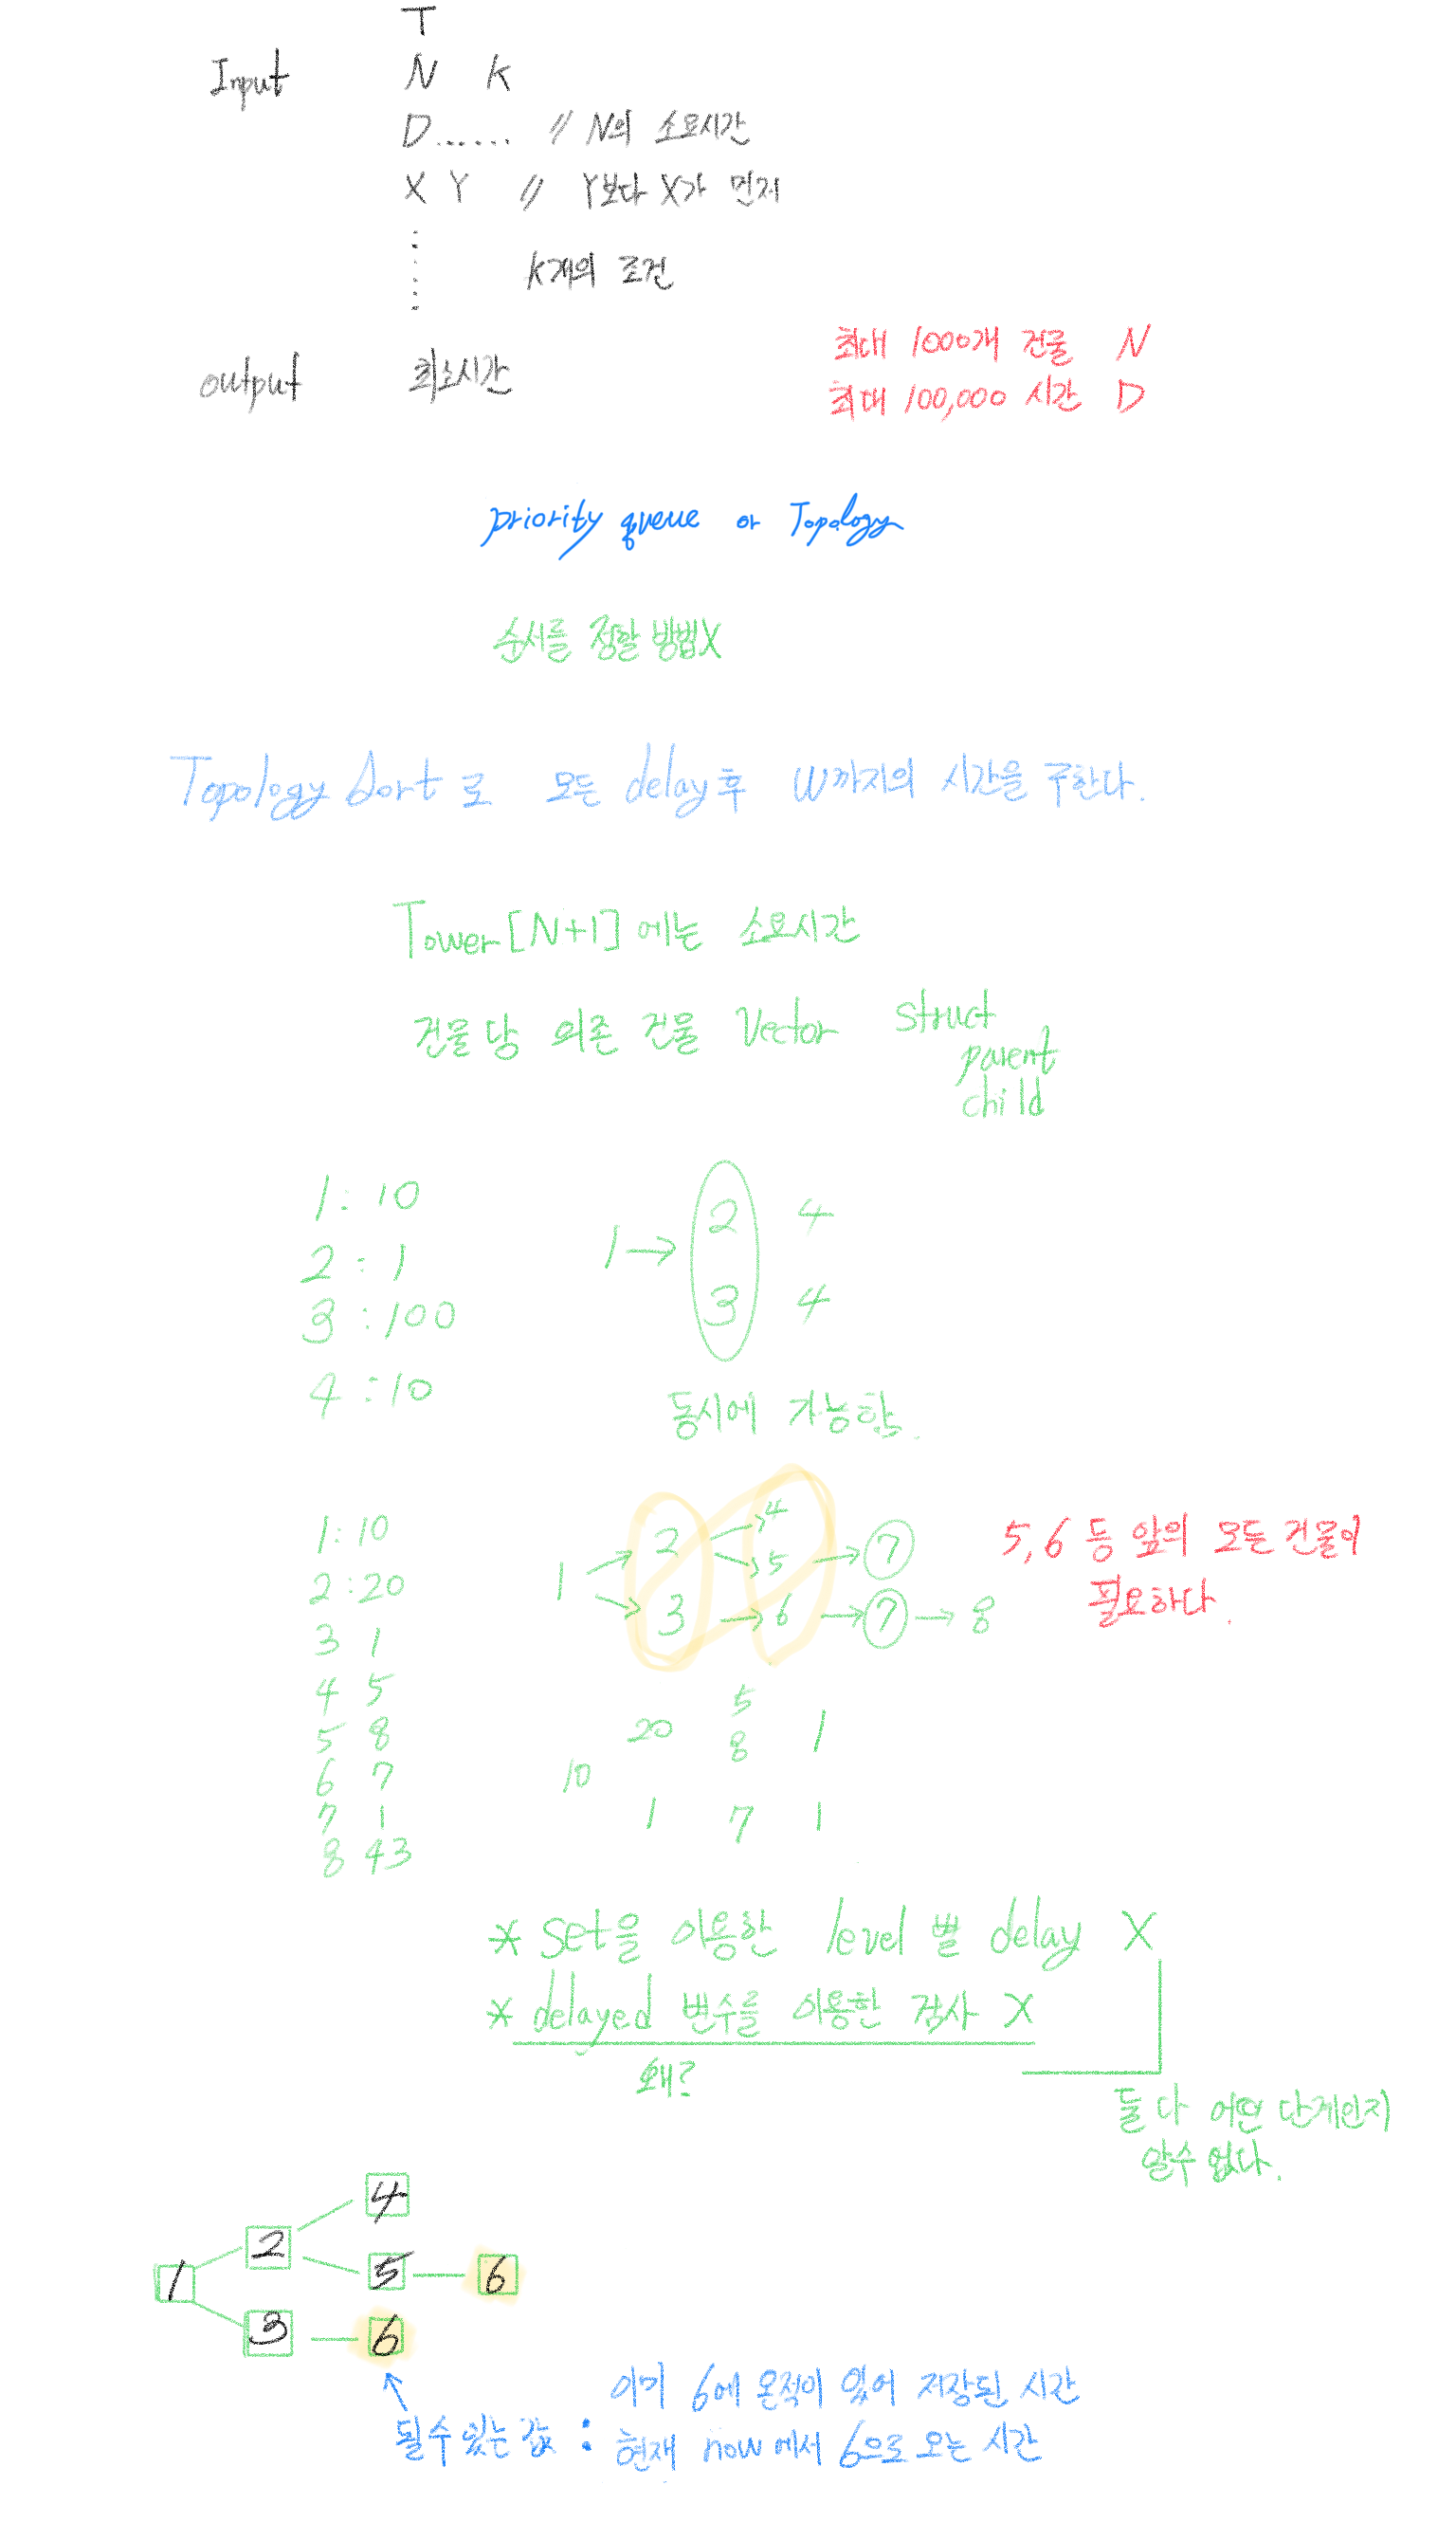 T
Input N K
D....... // N의 소요시간
X Y // Y보다 X가 먼저
K개의 조건
output 최소시간
최대 1000개 건물 N
최대 100,000 시간 D
priority queue or Topology
순서를 정할 방법X
Topology Sort로 모든 delay후 W까지의 시간을 구한다.
Tower[N+1]에는 소요시간
건물당 의존 건물 Vector Struct
parent
child
1: 10
2: 1
3: 100
4: 10
1 → 2 4
3 4
동시에 가능함.
1: 10
2: 20
3 1
4 5
5 8
6 7
7 1
8 43
1 → 2 → 4
→ 5 → 7
→ 3 → 6 → 7 → 8
5, 6 등 앞의 모든 건물이
필요하다.
5
20 8 1
10
1 7 1
* Set을 이용한 level 별 delay X
* delayed 변수를 이용한 검사 X
왜?
둘 다 어떤 단계인지
알수 없다.
4
2
1 5 6
3 6
될수 있는 값 : 이미 6에 온적이 있어 저장된 시간
현재 now에서 6으로 오는 시간